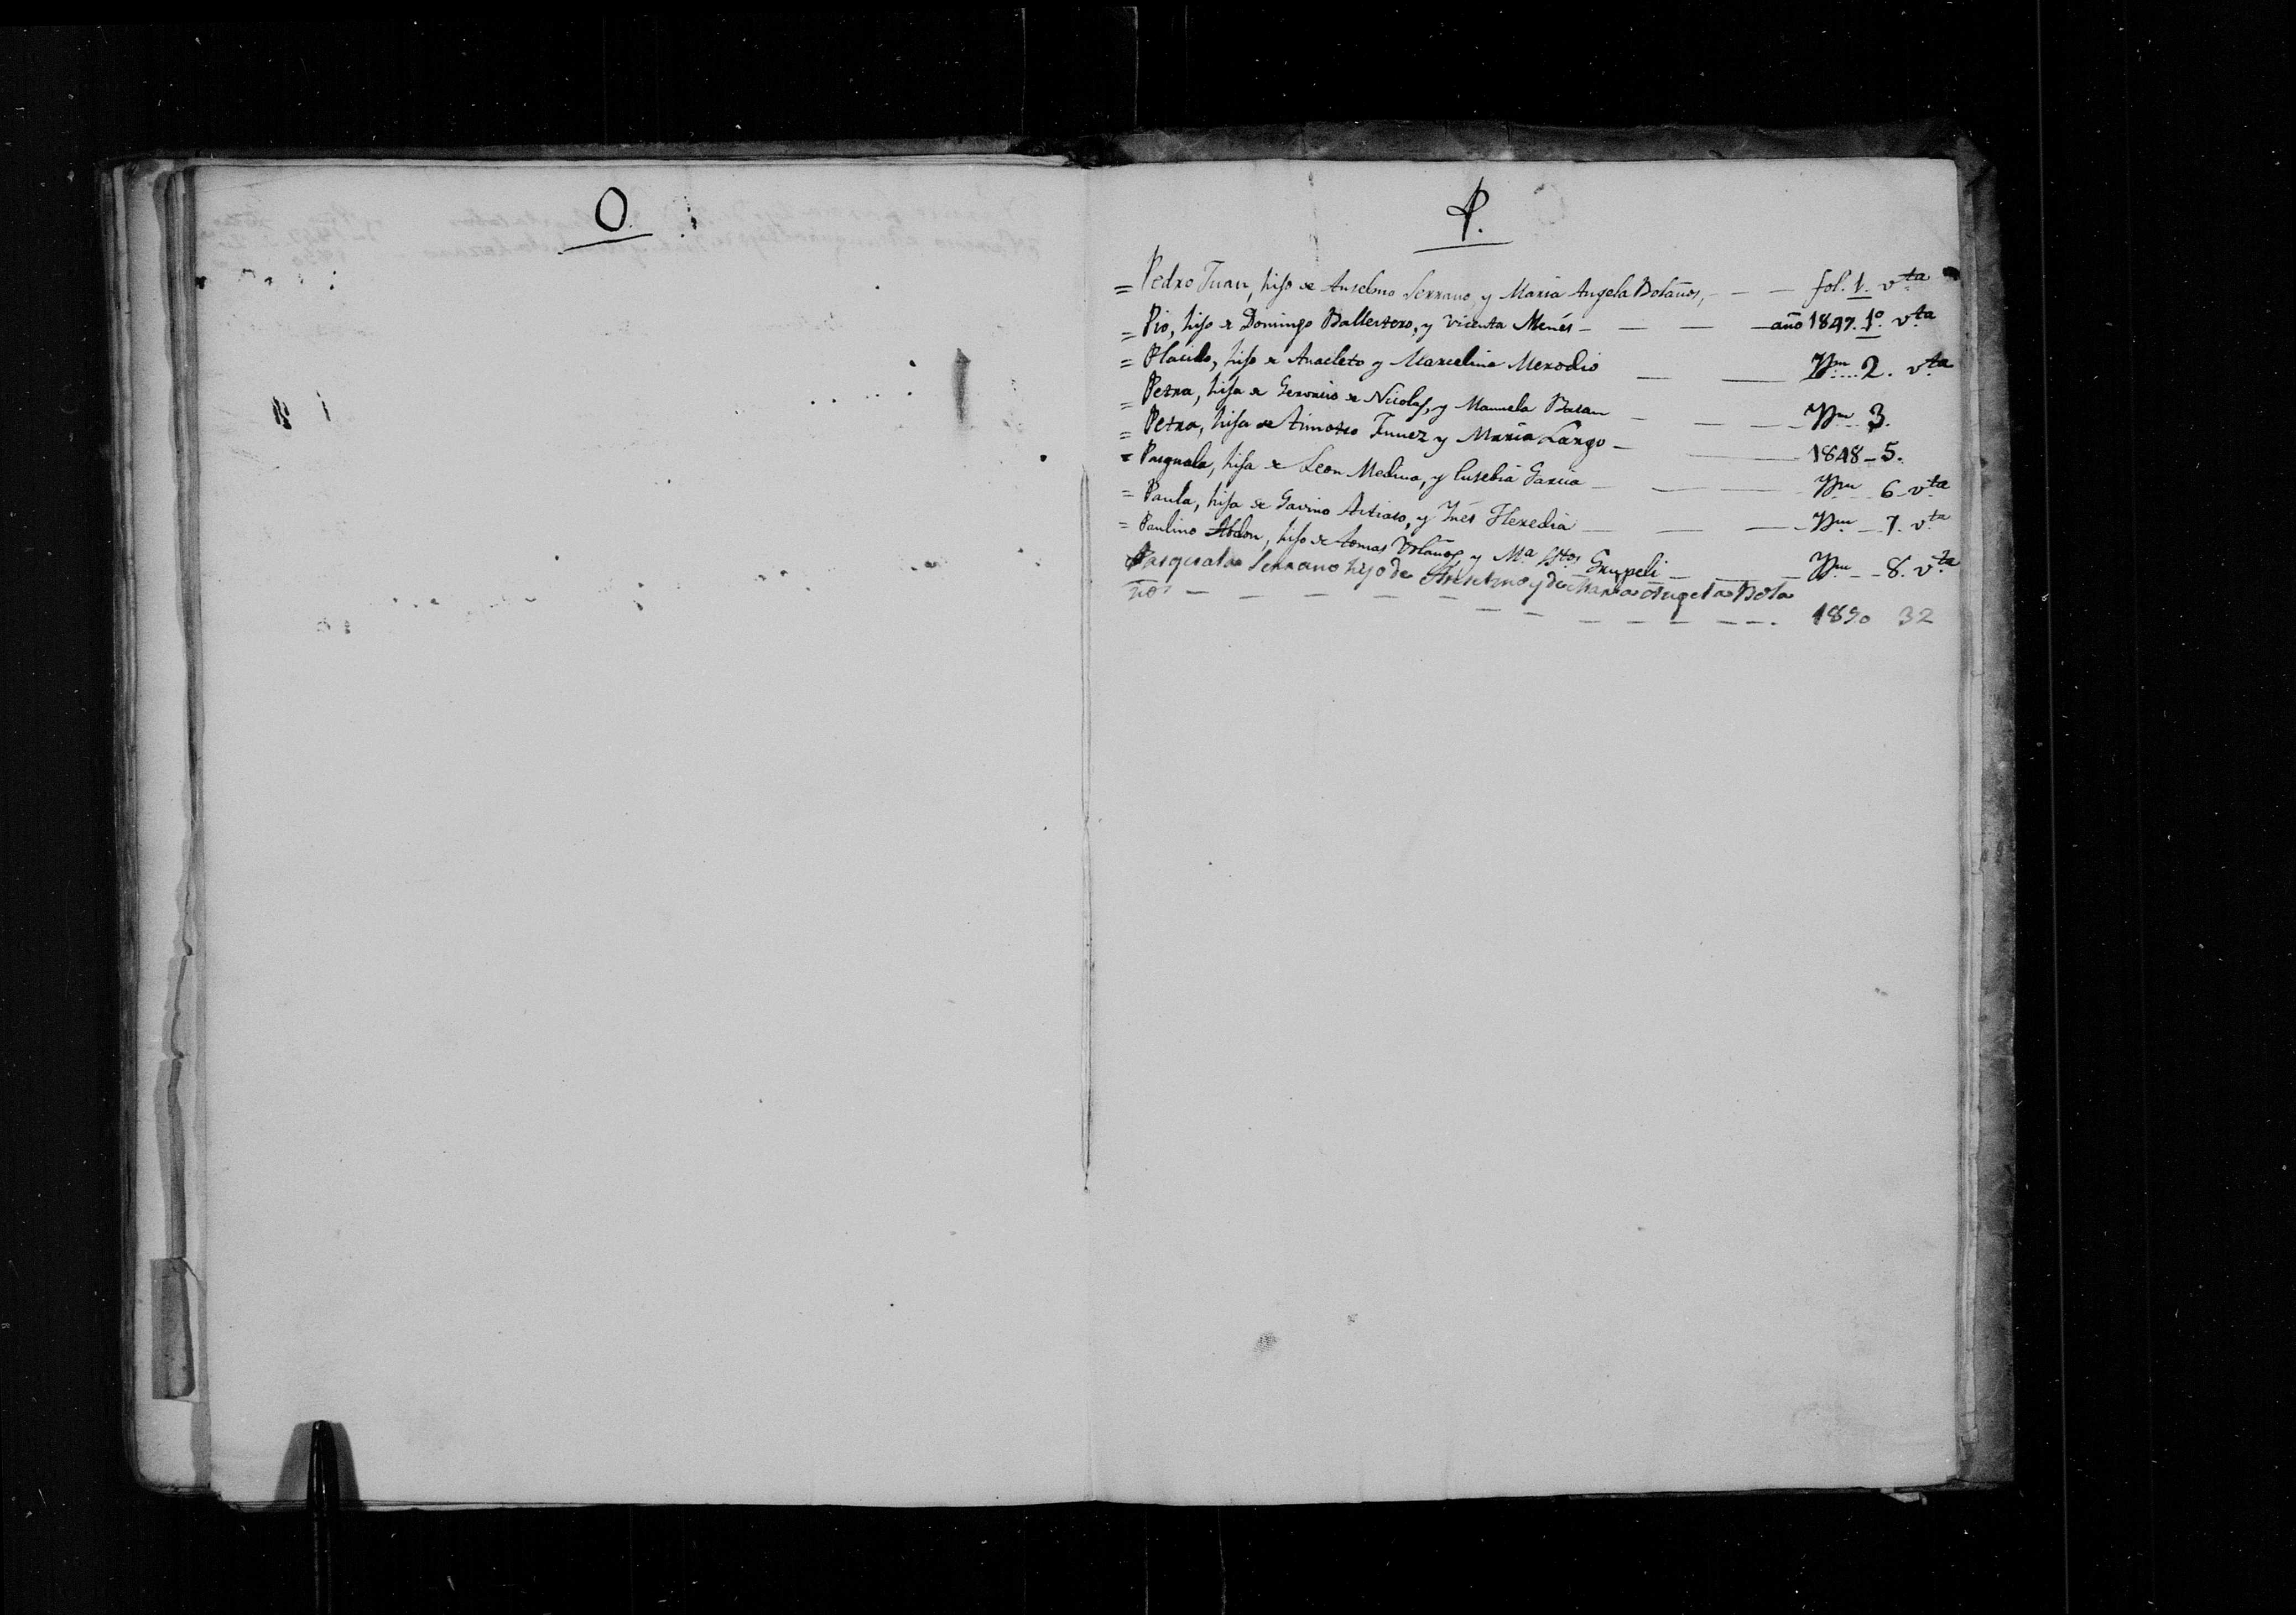 O.
P.
= Pedro Juan, hijo de Anselmo Serrano, y Maria Angela Bolaños, - - - fol. 1. vta
= Pio, hijo de Domingo Ballestero, y Vicenta Menés - - - año 1847. 1º. vta
= Placido, hijo de Anacleto y Marcelina Merodio - - Ym 2. vta
= Petra, hija de Geroncio de Nicolas, y Manuela Bazan - - - Ym 3.
= Petra, hija de Timoteo Funez y Maria Largo - - 1848 - 5.
= Pasquala, hija de Leon Medina, y Eusebia Garcia - - - Ym 6 vta
= Paula, hija de Gavino, y Ynés Heredia - - - Ym - 7. vta
= Paulino Abdon, hijo de tomas Bolaños y Mª Stos Grupeli - - - Ym - 8. vta
Pasquala Serrano hijo de Anselmo y de Maria Angela Bola
ños - - - - - - - - - - - - - 1850 32